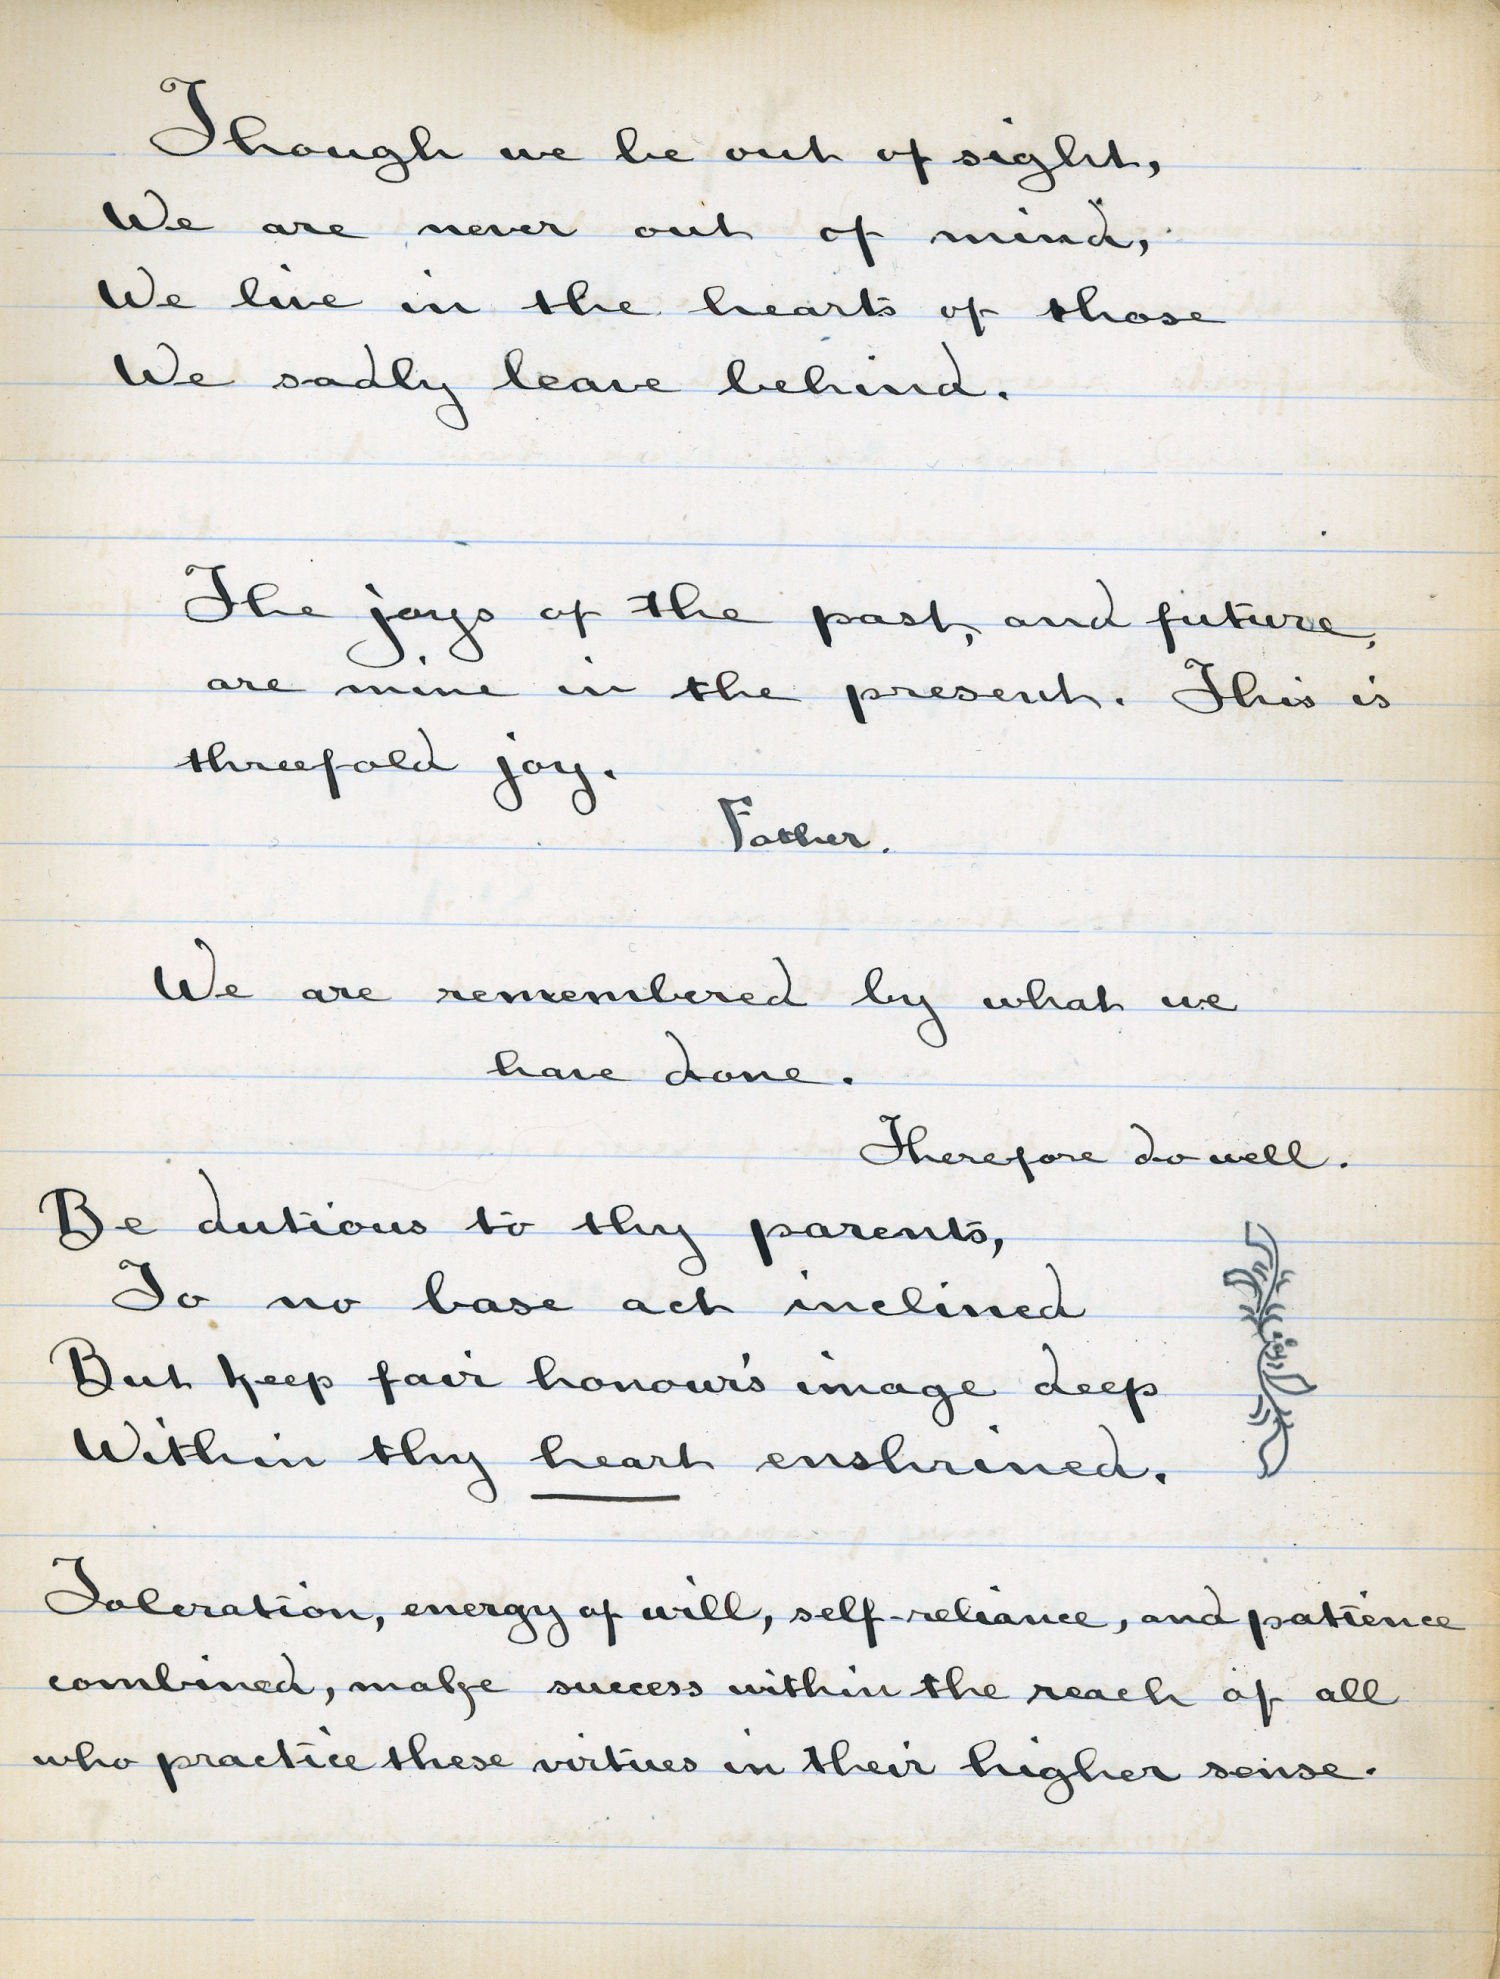 Though we be out of sight,
We are never out of mind,
We live in the hearts of those
We sadly leave behind.
The joys of the past, and future,
are mine in the present. This is
threefold joy.
Father.
We are remembered by what we
have done.
Therefore do well.
Be dutious to thy parents,
To no base act inclined
But keep fair honour's image deep
Within thy heart enshrined.
Toleration, energy of will, self-reliance, and patience
combined, make success within the reach of all
who practice these virtues in their higher sense.